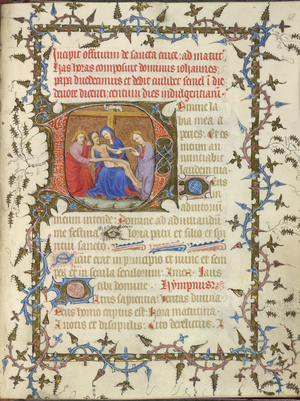 Incipit offitium de sancta cruce: ad matut
has horas composuit dominus iohannes
papa duodecimus et dedit cuilibet semel i die
devote dicenti centum dies indulgentiarum.
Domine la
bia mea a
peries: Et os
meum an
nuntiabit
laudem tua
meum intende: Domine ad adiuvandu
me festina Gloria patri et filio et spi
ritui sancto
Sicut erat in principio et nunc et sem
per et in secula seculorum Amen Laus
tibi domine Hympnus
Patris sapientia veritas divina
Deus homo captus est hora matutina
A notis et discipulis cito derelictus A